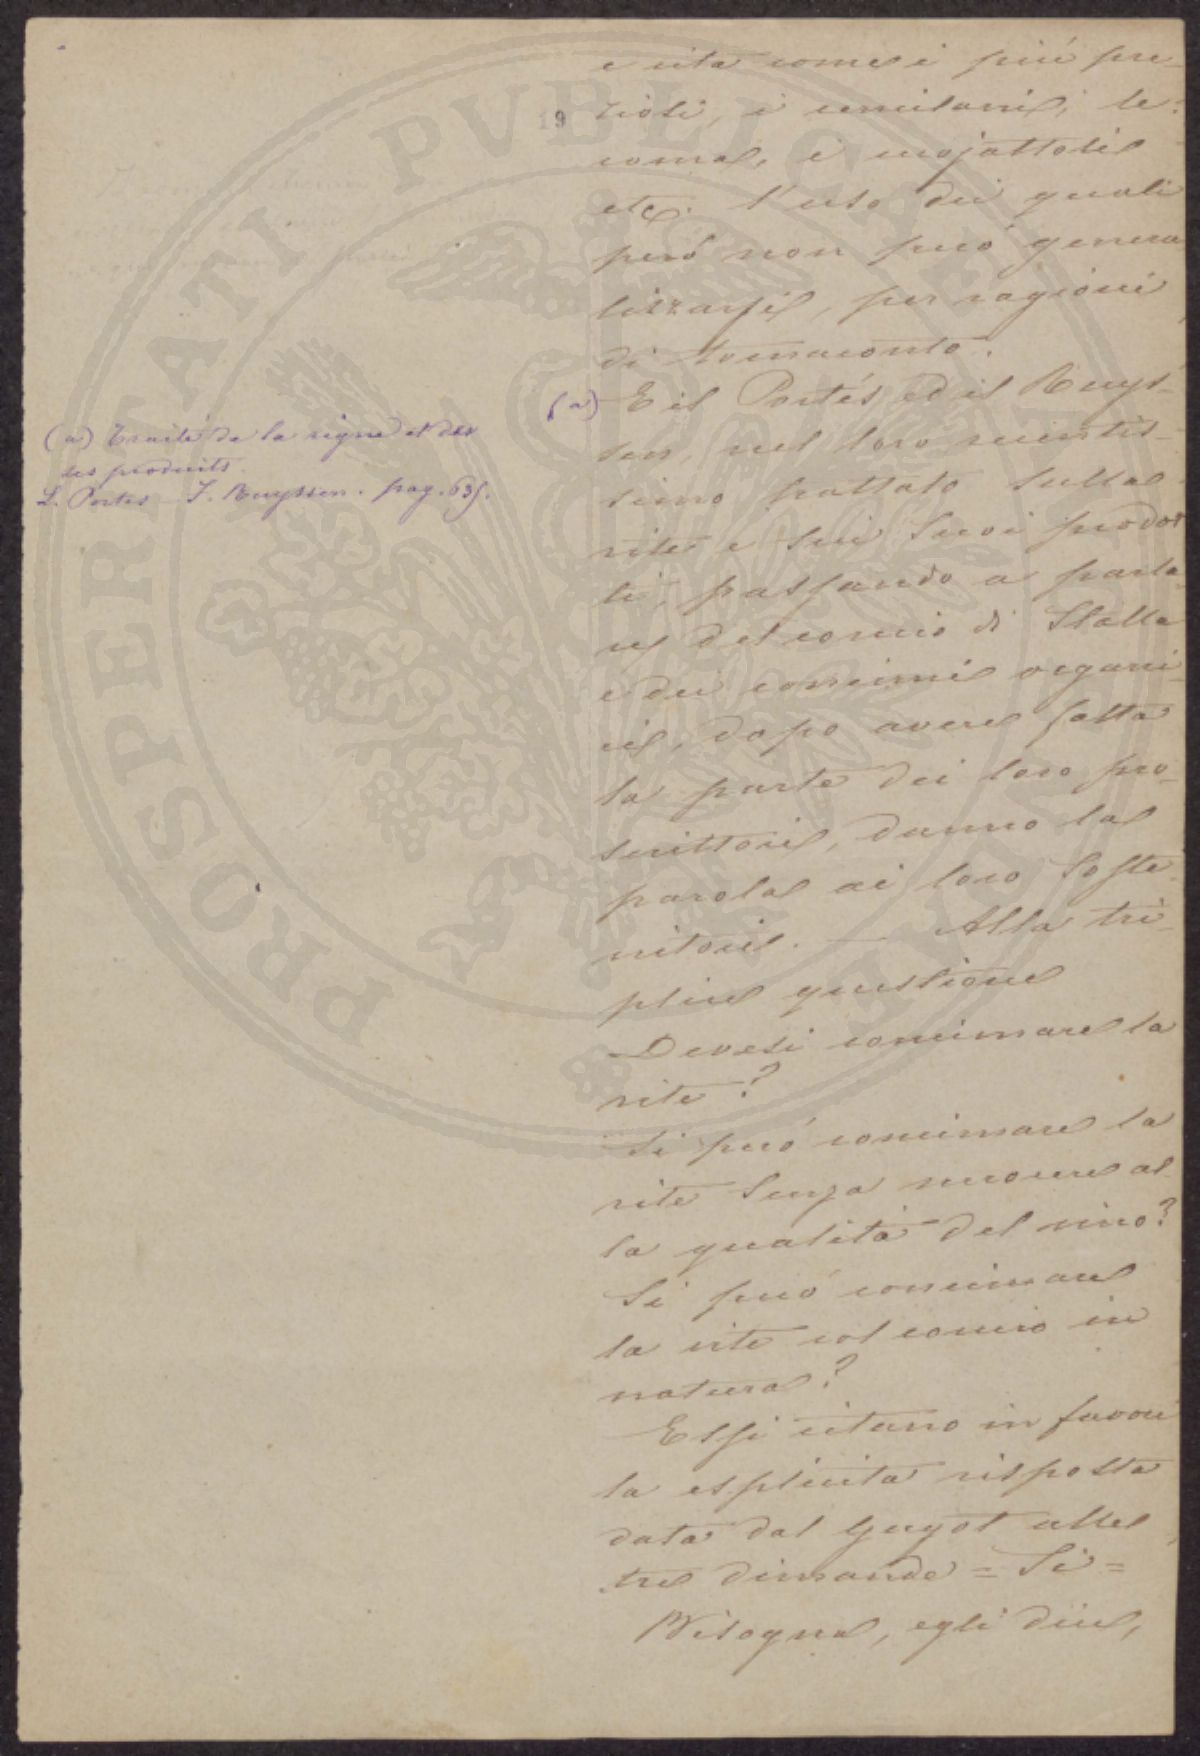 19
e cita come i più pre-
ziosi, i
come, i
etc. l'uso dei quali
però non può genera
lizzarsi, per ragioni
di tornaconto.
(a) E il Portés ed il Ruys-
sen, nel loro recentis-
simo trattato sulla
vite e sui suoi prodot
ti, passando a parla-
re del concio di Stalla
e dei concimi organi-
ci, dopo avere fatta
la parte dei loro pro-
scrittori, danno la
parola ai loro Soste-
nitori. — Alla tri-
plice questione
Devesi concimare la
vite?
Si può concimare la
vite senza nuocere al-
la qualità del vino?
Si può concimare
la vite col concio in
natura?
Essi citano in favore
la esplicita risposta
data dal Guyot alle
tre dimande = Si =
Bisogna, egli dice,
(a) Traité de la vigne et de
ses produits.
L. Portes F. Ruyssen. pag. 635.
PROSPERITATI PVBLICAE